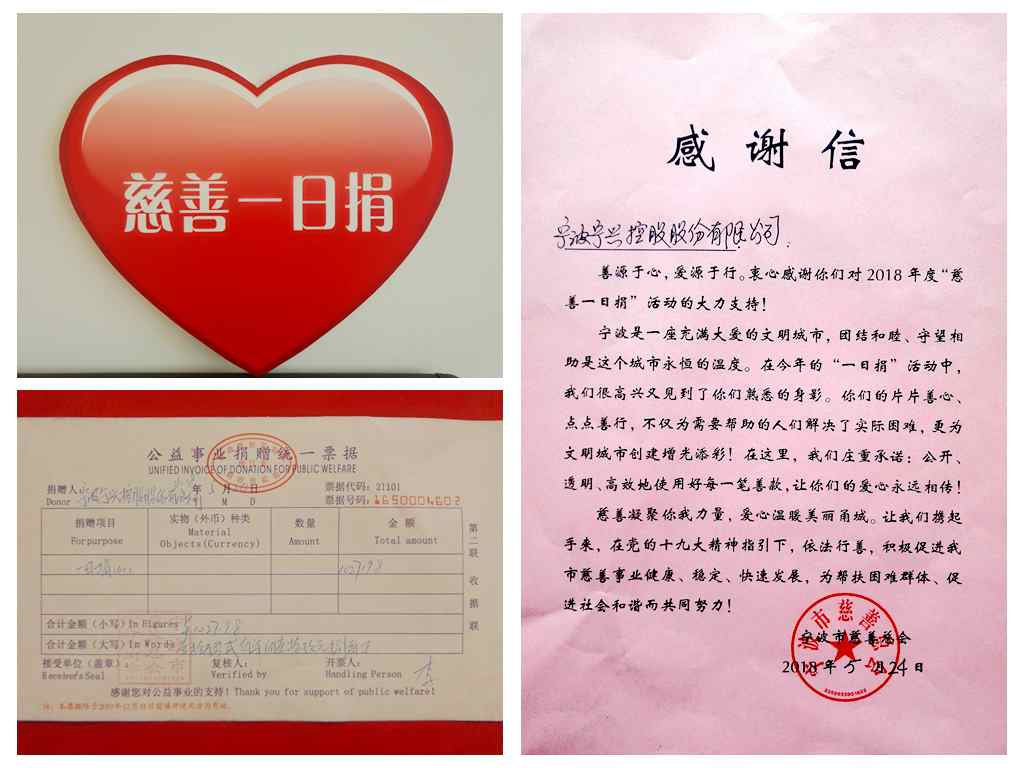 慈善一日捐
公益事业捐赠统一票据
UNIFIED INVOICE OF DONATION FOR PUBLIC WELFARE
捐赠人 宁波宁兴控股股份有限公司 年 5 月 日 票据代码：27101
Donor Y M D 票据号码：1650004602
捐赠项目 实物（外币）种类 数量 金 额
For purpose Material Objects(Currency) Amount Total amount
一日捐
合计金额（小写）In Figures
合计金额（大写）In Words
接受单位（盖章）： 复核人： 开票人：
Receiver's Seal Verified by Handling Person 李
感谢您对公益事业的支持！Thank you for support of public welfare!
第二联 收据联
感谢信
宁波宁兴控股股份有限公司：
善源于心，爱源于行。衷心感谢你们对 2018 年度“慈
善一日捐”活动的大力支持！
宁波是一座充满大爱的文明城市，团结和睦、守望相
助是这个城市永恒的温度。在今年的“一日捐”活动中，
我们很高兴又见到了你们熟悉的身影。你们的片片善心、
点点善行，不仅为需要帮助的人们解决了实际困难，更为
文明城市创建增光添彩！在这里，我们庄重承诺：公开、
透明、高效地使用好每一笔善款，让你们的爱心永远相传！
慈善凝聚你我力量，爱心温暖美丽甬城。让我们携起
手来，在党的十九大精神指引下，依法行善，积极促进我
市慈善事业健康、稳定、快速发展，为帮扶困难群体、促
进社会和谐而共同努力！
宁波市慈善总会
2018 年 5 月 24 日